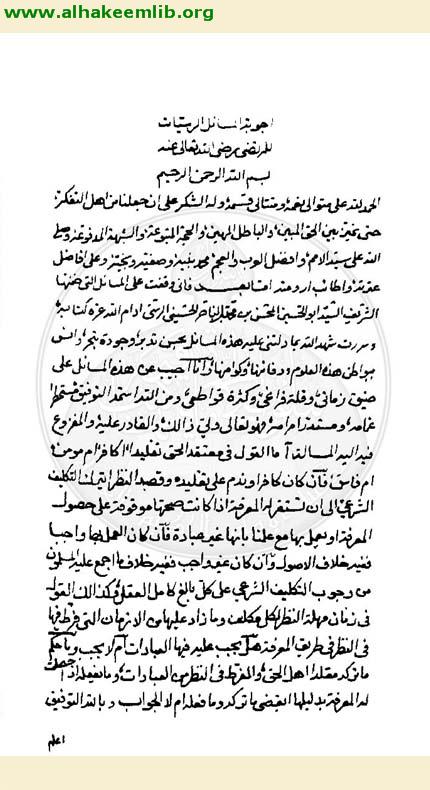 www.alhakeemlib.org
اجوبة المسائل الرسيات
للمرتضى رضى الله تعالى عنه
بسم الله الرحمن الرحيم
الحمد لله على متوالى نعمه ومتتالى قسمه وله الشكر على ان جعلنا من اهل التفكر
حتى نميز بين الحق المبين والباطل المهين والحجة المتبوعة والشبهة المدفوعة وصلى
الله على سيد الامم وافضل العرب والعجم محمد نبيه وصفيه ونجيه وعلى افاضل
عترته واطائب ارومته اما بعد فانى وقفت على المسائل التى ضمنها
الشريف السيد ابو الحسين المحسن بن محمد بن الناصر الحسينى الرسى ادام الله عزه كتابه
وسررت شهد الله بما دلتنى عليه هذه المسائل بحسن تدبر وجودة تبحر وانس
بمواطن هذه العلوم ودفائنها وكوامنها وانا اجيب عن هذه المسائل على
ضيق زمانى وقلة فراغى وكثرة قواطعى ومن الله استمد التوفيق
فهو تعالى ولى ذالك والقادر عليه والمفزوع
فيه اليه المسالة ما القول فى معتقد الحق تقليدا اكافر ام مومن
ام فاسق فان كان كافرا وندم على تقليده وقصد النظر اليه التكليف
الشرعى الى ان تستقر له المعرفة اذا كانت صحتها موقوفة على حصول
المعرفة او يعمل بها مع علمنا بانها غير عبادة فان كان العمل بها واجبا
فغير خلاف الاصول وان كان غير واجب فغير خلاف ما اجمع عليه المسلمون
من وجوب التكليف الشرعى على كل بالغ كامل العقل وكذالك القول
فى زمان مهلة النظر لكل مكلف وما زاد عليها من الازمان التى فرط فيها
فى النظر فى طريق المعرفة هل يجب عليه فيها العبادات ام لا يجب وما حكم
ما تركه مقلد اهل الحق والمفرط فى النظر من العبادات وما نفعله اذا حصلت
له المعرفة بدليلها ايقضى ما تركه وما فعله ام لا الجواب وبالله التوفيق
اعلم